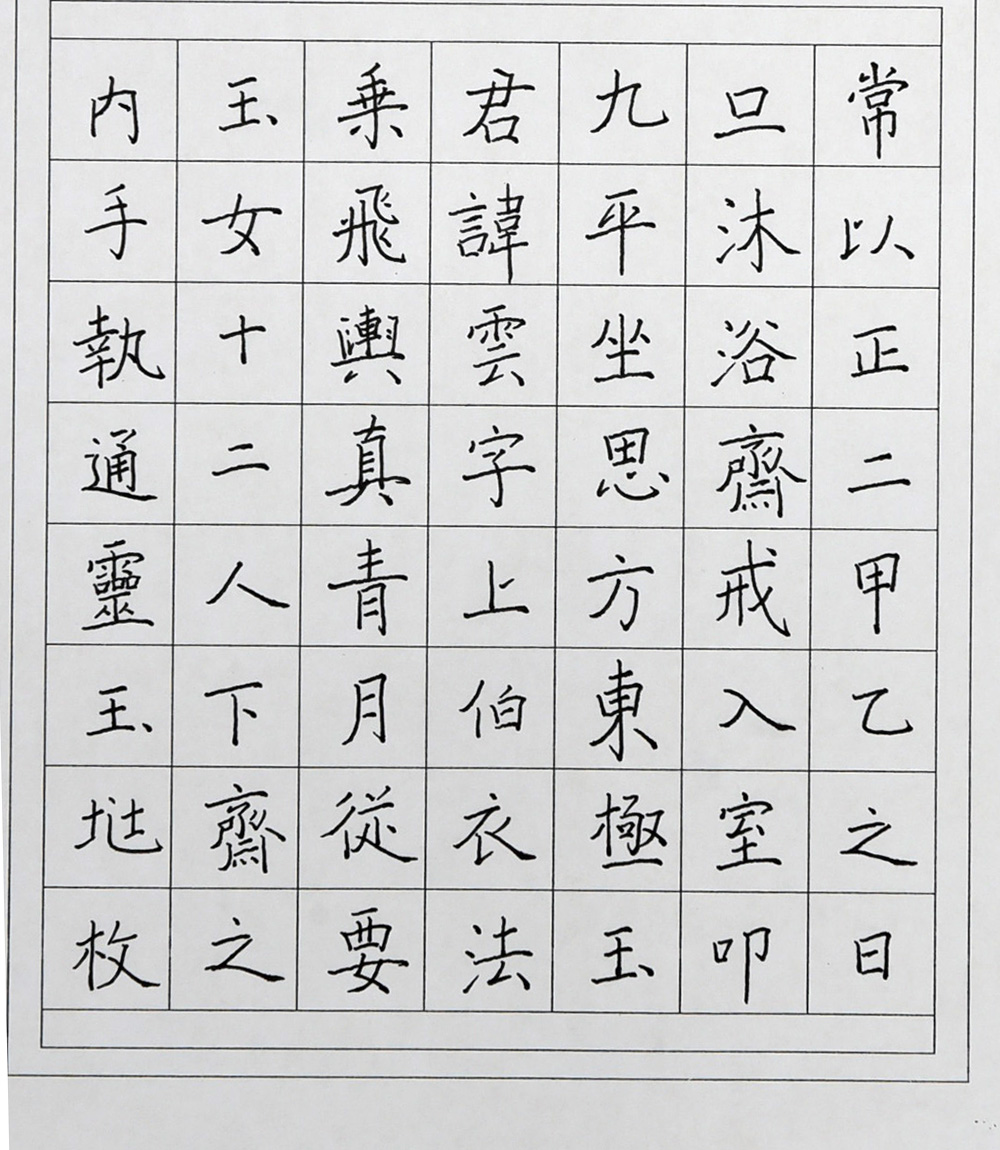 常以正二甲乙之日
旦沐浴齋戒入室叩
九平坐思方東極玉
君諱雲字上伯衣法
乗飛輿真青月從要
玉女十二人下齋之
内手執通靈玉地枚